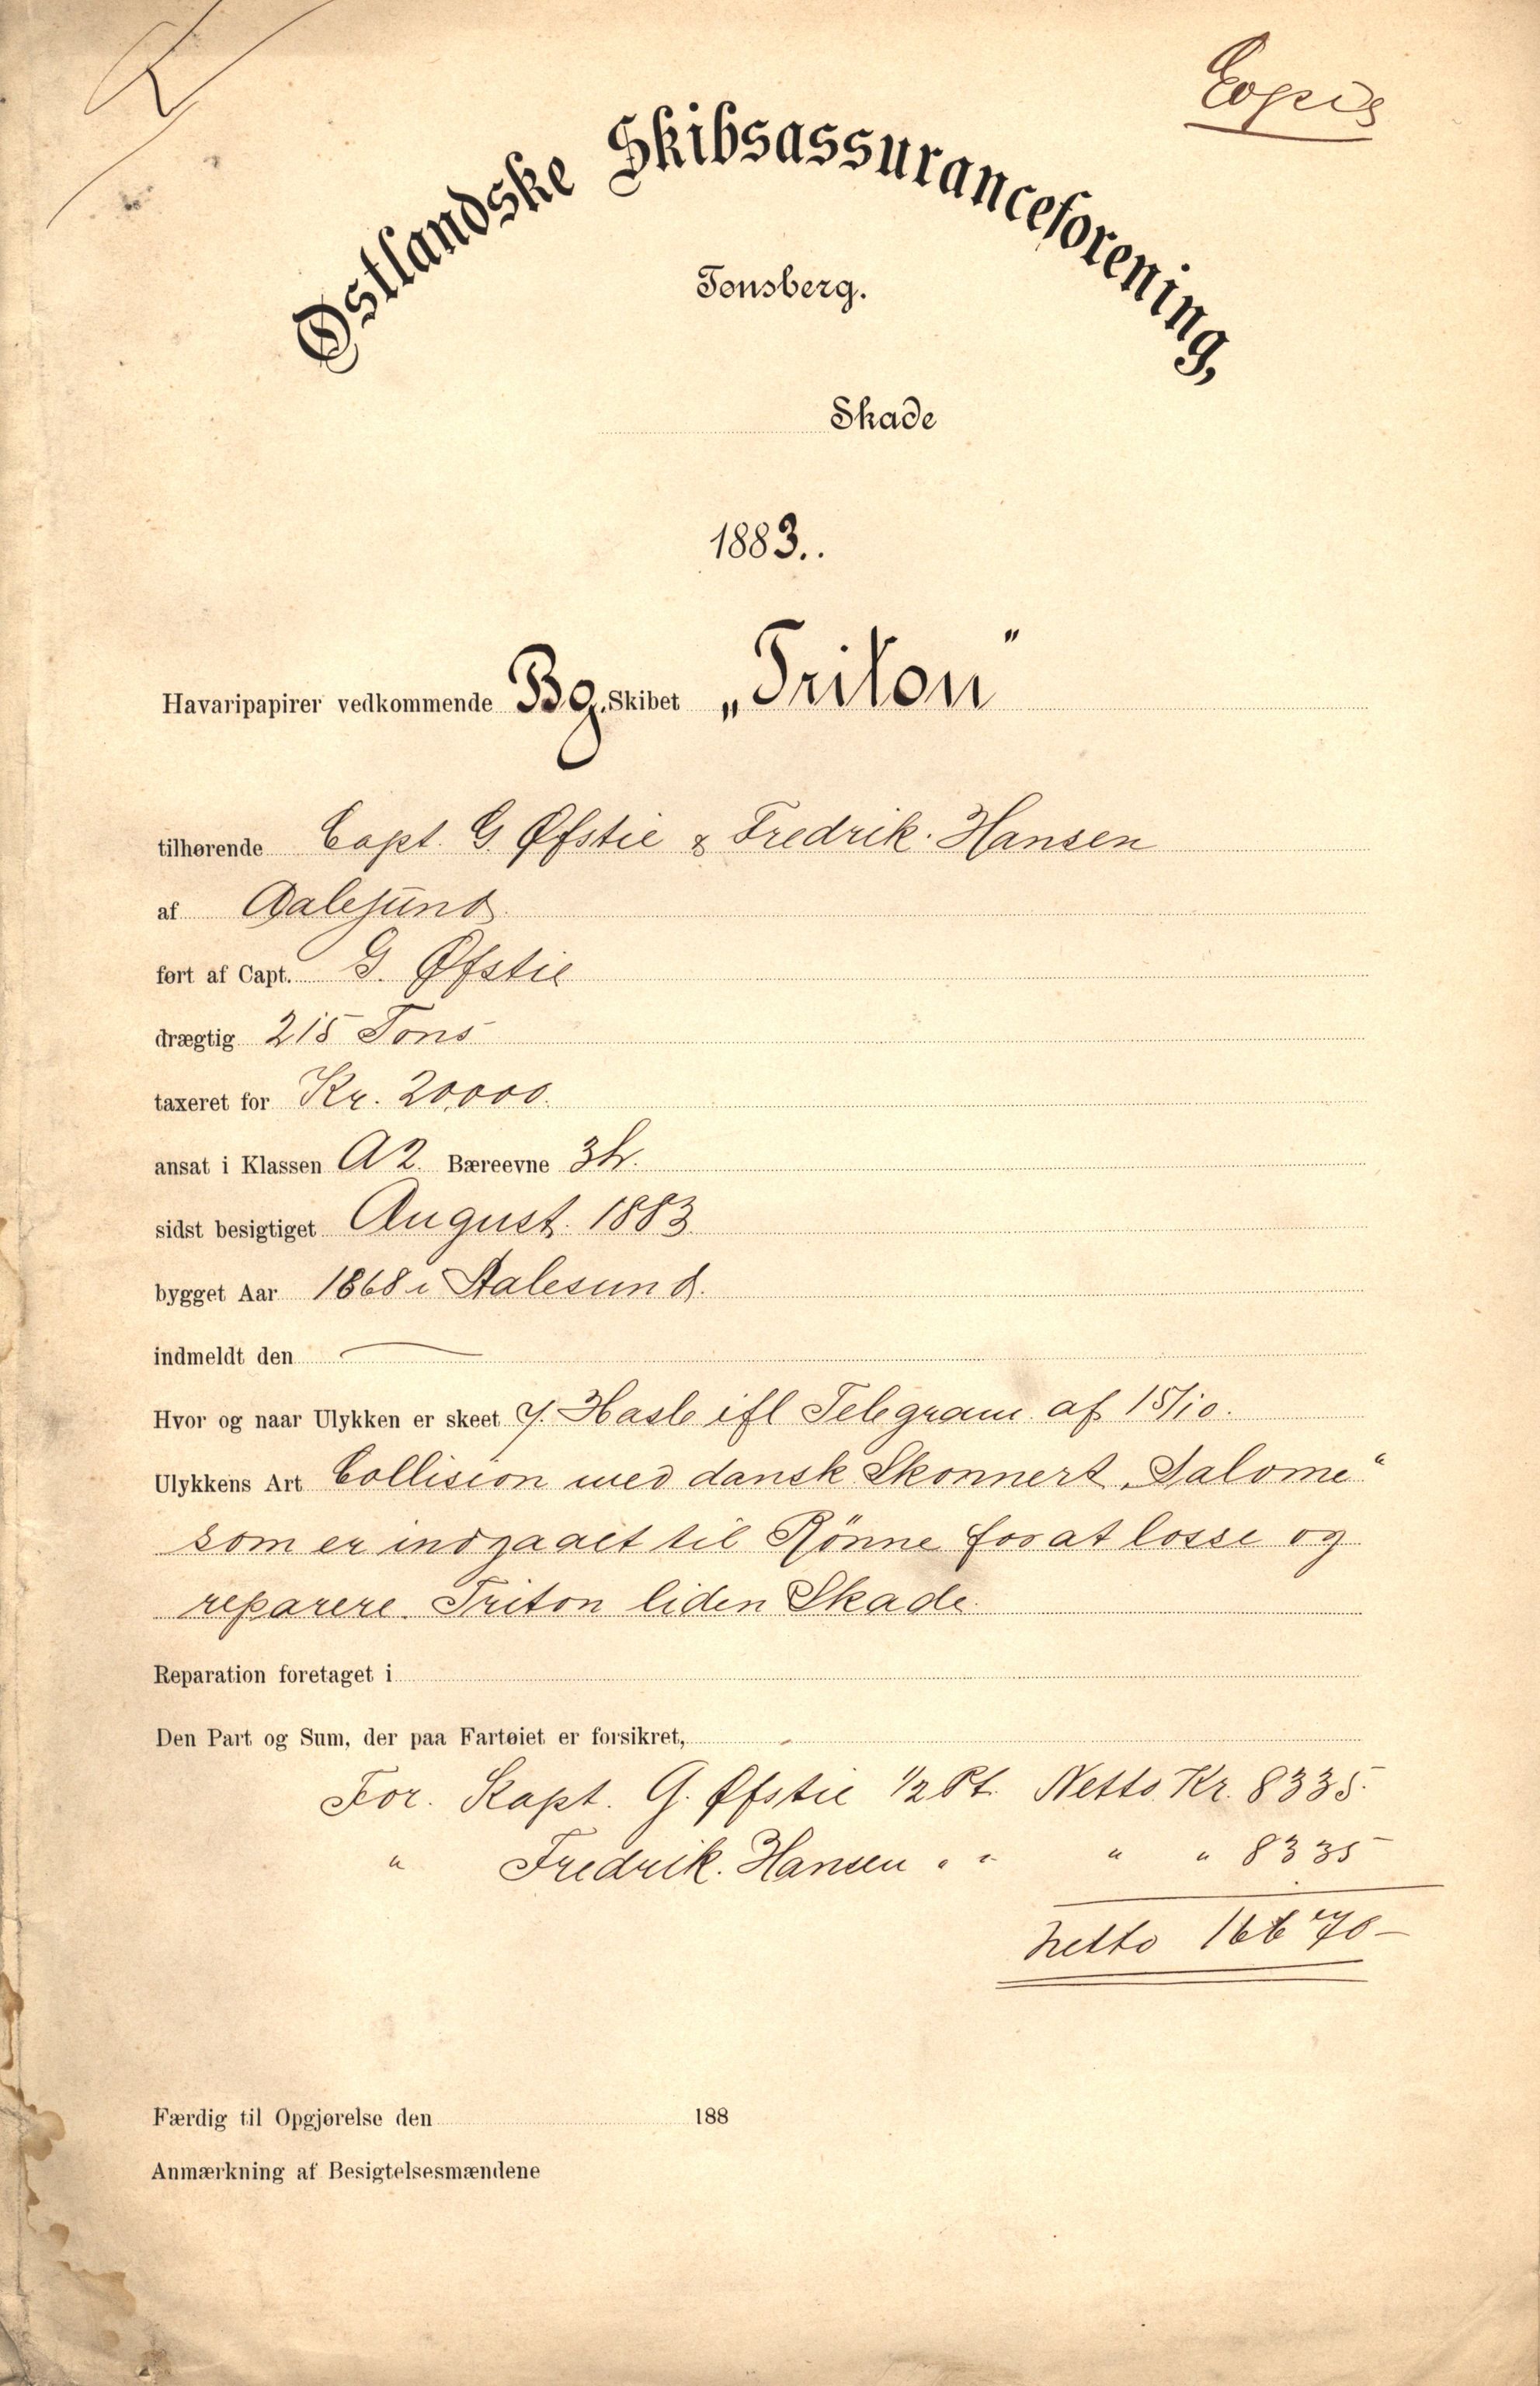 Copie
Østlandske Skibsassuranceforening,
Tønsberg.
Skade
1883..
Havaripapirer vedkommende Bg. Skibet „Triton"
tilhørende Capt. G Øfstie & Fredrik Hansen
af Aalesund
ført af Capt. G. Øfstie
drægtig 215 Tons
taxeret for Kr. 20,000.
ansat i Klassen A2. Bæreevne
sidst besigtiget August 1883
bygget Aar 1868 i Aalesund.
indmeldt den —
Hvor og naar Ulykken er skeet Hasle ifl Telegram af 15/10.
Ulykkens Art Collision med dansk Skonnert „Salome"
som er indgaaet til Rönne for at losse og
reparere. Triton liden Skade.
Reparation foretaget i
Den Part og Sum, der paa Fartøiet er forsikret,
For. Kapt. G. Øfstie 1/2 Pt. Netto Kr. 8335.
" Fredrik. Hansen " " " " 8335
Netto 16670—
Færdig til Opgjørelse den 188
Anmærkning af Besigtelsesmændene